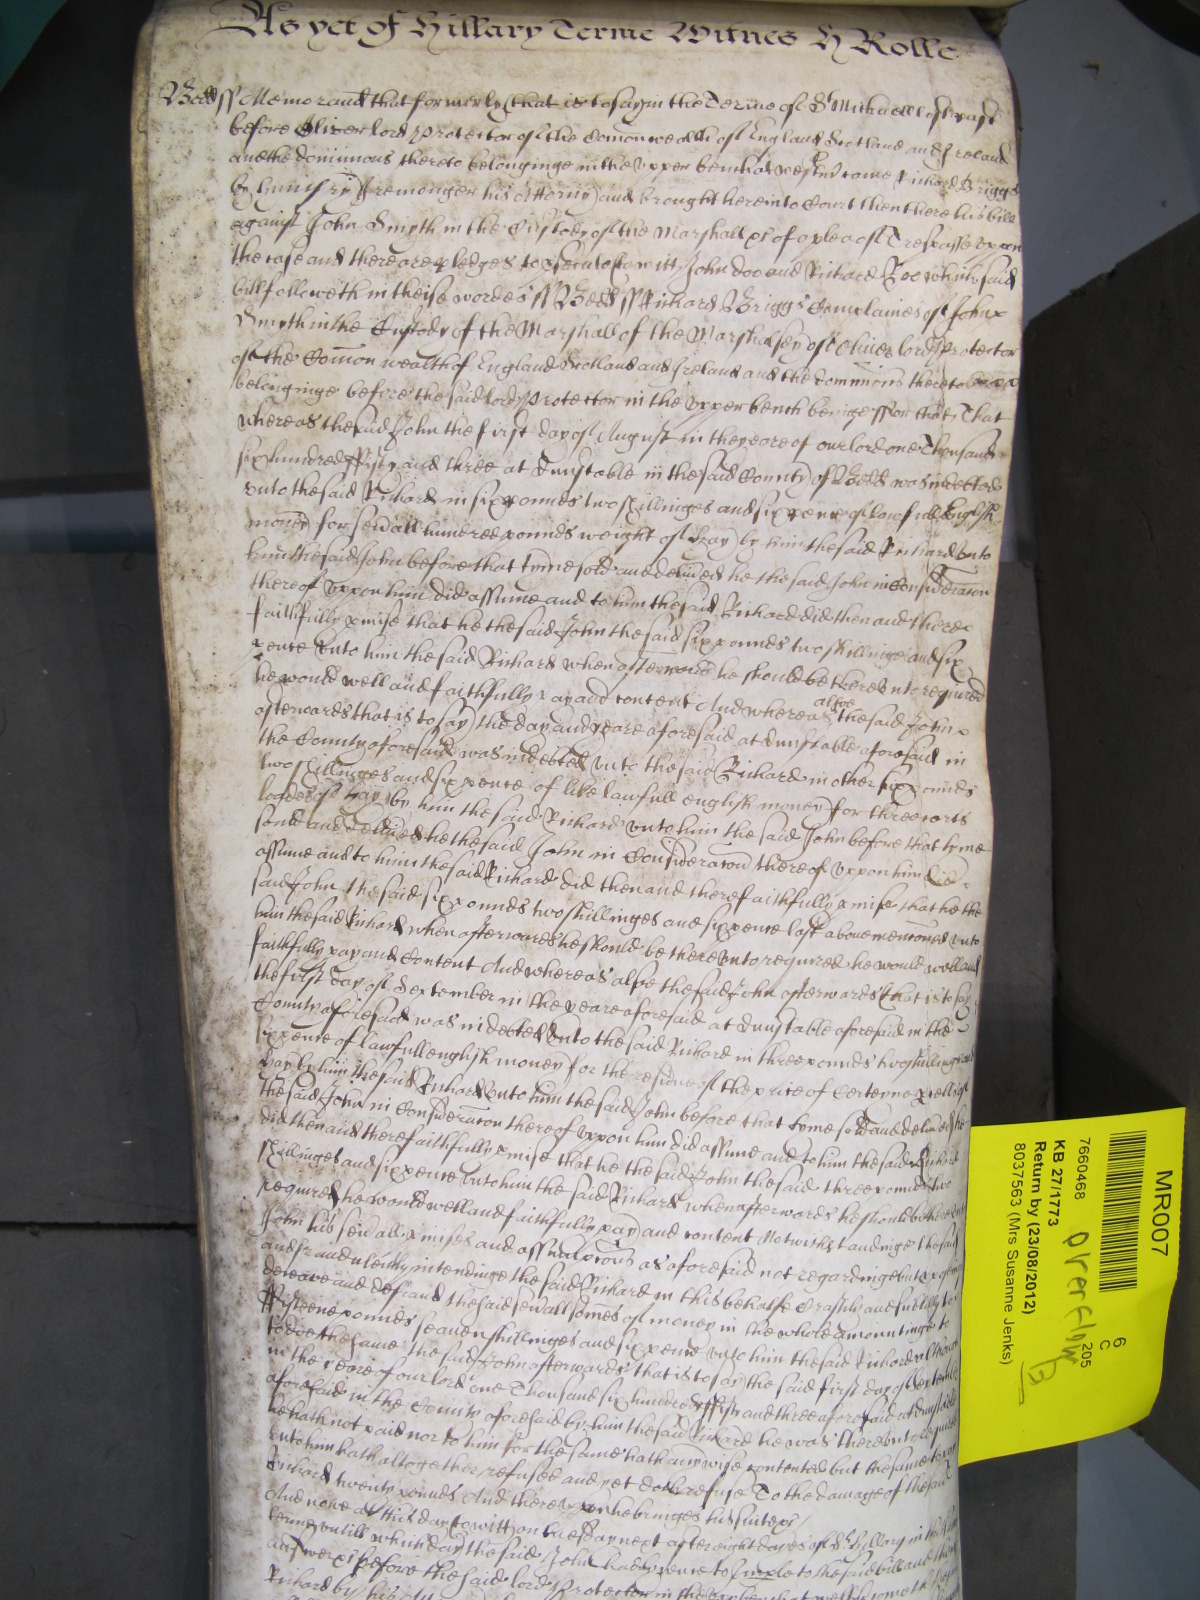 As yet of Hillary Terme Witnes H Rolle
Bedd ss Memorand that formerly (that is to say) in the Terme of St Michaell last past
before Oliver lord Protector of the Comonwealth of England Scotland and Ireland
and the dominions thereto belonginge in the upper bench at Westm came Richard Briggs
by Humfry Iremonger his Attorny and brought here into Court then there his bill
against John Smyth in the Custody of the Marshall &c of a plea of Trespasse uppon
the case and there are pledges to prosecute to witt John Doo and Richard Roe which said
bill followeth in theise wordes ss Bedd ss Richard Briggs Complaines of John
Smyth in the Custody of the Marshall of the Marshalsey of Oliver lord Protector
of the Comon wealth of England Scotland and Ireland and the dominions thereto
belonginge before the said lord Protector in the upper bench beinge ffor that That
whereas the said John the first day of August in the yeare of our lord one Thousand
six hundred ffifty and three at Dunstable in the said County of Bedd was indebted
unto the said Richard in six pounds two shillinges and six pence of lawfull English
money for sevall hundred pounds weight of hay by him the said Richard unto
him the said John before that tyme sold and delived he the said John in Consideracon
thereof uppon him did assume and to him the said Richard did then and there
faithfully pmise that he the said John the said six pounds two shillinges and six
pence unto him the said Richard when afterwards he should be thereunto required
he would well and faithfully pay and content And whereas alsoe the said John
afterwards that is to say the day and yeare aforesaid at Dunstable aforesaid in
the County aforesaid was indebted unto the said Richard in other six pounds
two shillinges and six pence of like lawfull english money for three carts
loades of hay by him the said Richard unto him the said John before that tyme
sould and delived he the said John in Consideracon thereof uppon him did
assume and to him the said Richard did then and there faithfully pmise that he the
said John the said six pounds two shillinges and six pence last above menconed unto
him the said Richard when afterwards he should be thereunto required he would well and
faithfully pay and content And whereas alsoe the said John afterwards that is to say
the first day of September in the yeare aforesaid at Dunstable aforesaid in the
County aforesaid was indebted unto the said Richard in three pounds two shillinges and
six pence of lawfull english money for the residue of the price of Certeyne
hay by him the said Richard unto him the said John before that tyme sold and delived he
the said John in Consideracon thereof uppon him did assume and to him the said Richard
did then and there faithfully pmise that he the said John the said three pounds two
shillinges and six pence unto him the said Richard when afterwards he should be thereunto
required he would well and faithfully pay and content Notwithstandinge the said
John his sevall pmises and assumpcons as aforesaid not regardinge but
and fraudulently intendinge the said Richard in this behalfe Craftily and subtilly to
deceave and defraud the said sevall somes of money in the whole amountinge to
ffifteene pounds seaven shillinges and six pence unto him the said Richard although
to doe the same the said John afterwards that is to say the said first day of September
in the yeare of our lord one Thousand six hundred ffifty and three aforesaid at Dunstable
aforesaid in the County aforesaid by him the said Richard he was thereunto required
he hath not paid nor to him for the same hath any wise contented but the same to pay
unto him hath altogether refused and yet doth refuse To the damage of the said
Richard twenty pounds And thereuppon he bringes his suite &c
And nowe at this day to witt on tuesday next after eight dayes of St Hillary in this
terme untill which day the said John had lycence to Imple to the said bill and then to
answere &c before the said lord Protector in the upper bench at Westm come the
Richard by his
MR007
6
C
205
7660468
KB 27/1773
Return by (23/08/2012)
8037563 (Mrs Susanne Jenks)
Overflow